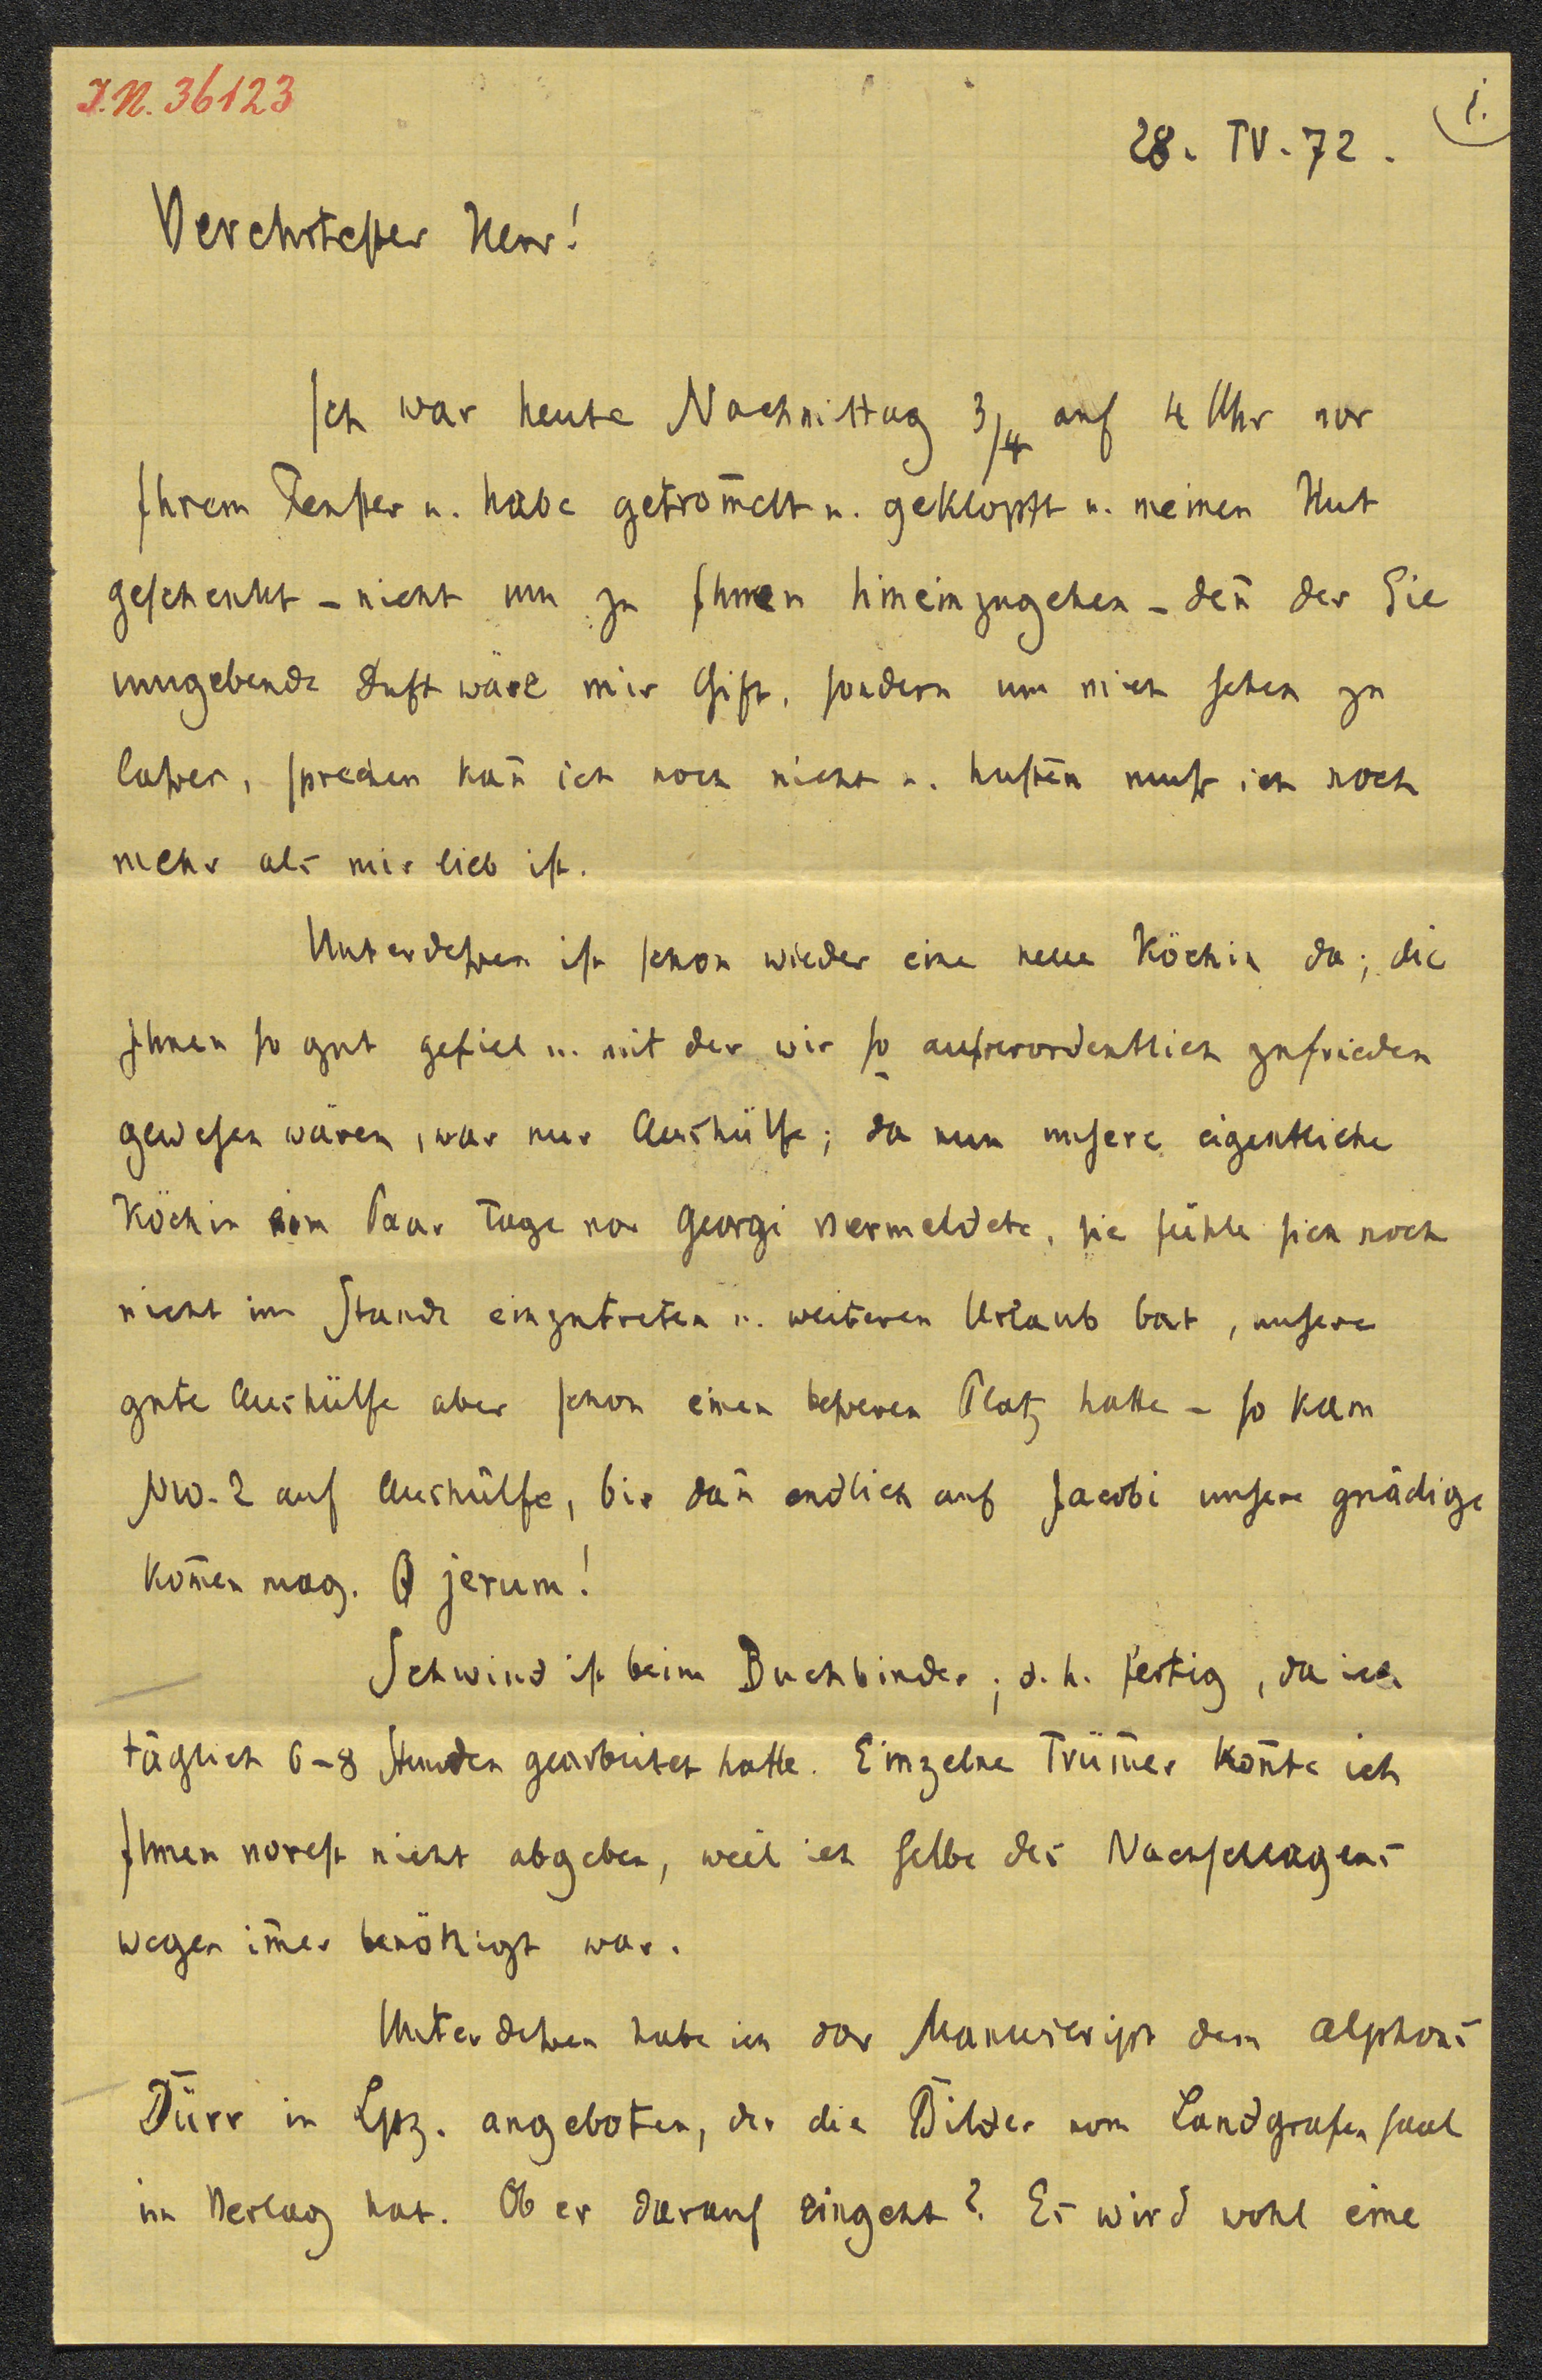 I.N. 36123
1.
28. IV. 72.
Verehrtester Herr!
Ich war heute Nachmittag 3/4 auf 4 Uhr vor
Ihrem Fenster u. habe getrom̄elt u. geklopft u. meinen Hut
geschwenkt – nicht um zu Ihnen hineinzugehen – den̄ der Sie
umgebende Duft wäre mir Gift, sondern um mich sehen zu
laßen, sprechen kan̄ ich noch nicht u. husten muß ich noch
mehr als mir lieb ist.
Unterdeßen ist schon wieder eine neue Köchin da; die
Ihnen so gut gefiel u. mit der wir so außerordentlich zufrieden
gewesen wären, war nur Aushülfe; da nun unsere eigentliche
Köchin ein Paar Tage vor Georgi vermeldete, sie fühle sich noch
nicht im Stande einzutreten u. weiteren Urlaub bat, unsere
gute Aushülfe aber schon einen beßeren Platz hatte – so kam
Nro. 2 auf Aushülfe, bis dan̄ endlich auf Jacobi unsere gnädige
kom̄en mag. O jerum!
Schwind ist beim Buchbinder; d. h. fertig, da ich
täglich 6–8 Stunden gearbeitet hatte. Einzelne Trüm̄er kon̄te ich
Ihnen vorest nicht abgeben, weil ich selbe des Nachschlagens
wegen im̄er benöthigt war.
Unterdeßen habe ich das Manuscript dem Alphons
Dürr in Lpz. angeboten, der die Bilder vom Landgrafensaal
im Verlag hat. Ob er darauf eingeht? Es wird wohl eine